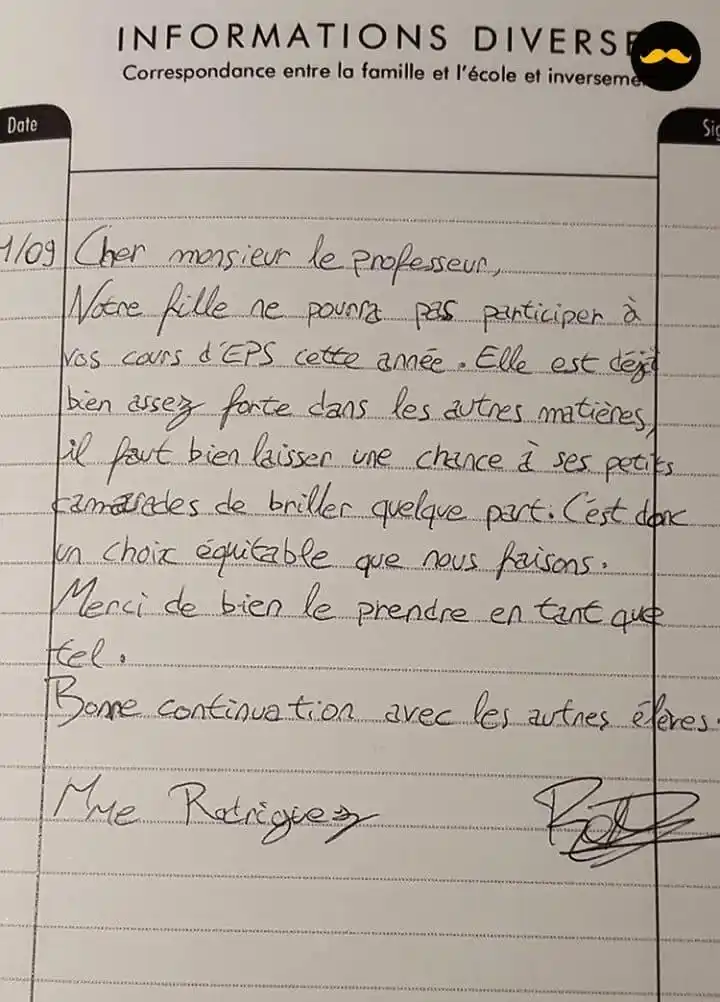 INFORMATIONS DIVERSE
Correspondance entre la famille et l'école et inverseme
Date
Sig
1/09 Cher monsieur le professeur,
Notre fille ne pourra pas participer à
vos cours d'EPS cette année. Elle est déjà
bien assez forte dans les autres matières,
il faut bien laisser une chance à ses petits
camarades de briller quelque part. C'est donc
un choix équitable que nous faisons.
Merci de bien le prendre en tant que
tel.
Bonne continuation avec les autres élèves.
Mme Rodriguez